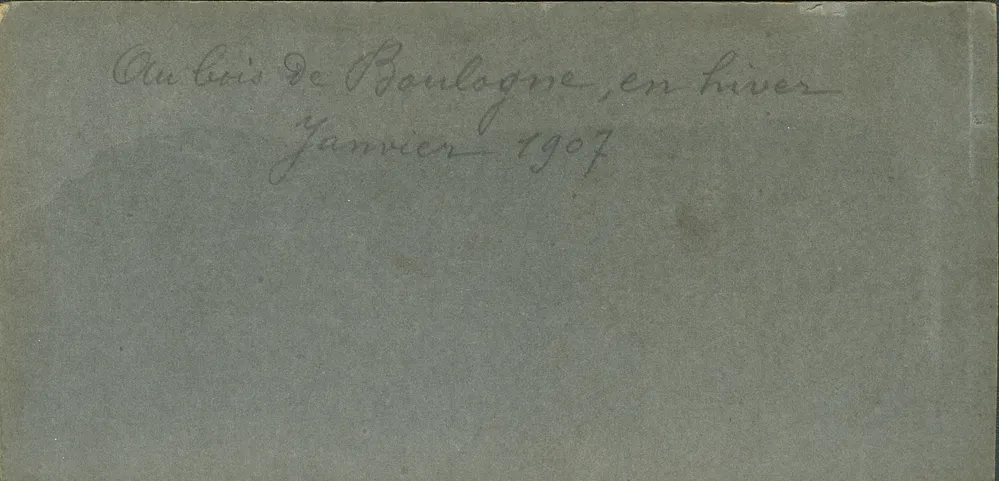 Au bois de Boulogne, en hiver
Janvier 1907